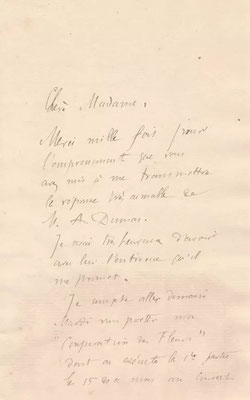 Chère Madame,
Merci mille fois pour
l'empressement que vous
avez mis à me transmettre
la réponse très aimable de
M. A. Dumas.
Je serai très heureux d'avoir
avec lui l'entrevue qu'il
me promet.
Je compte aller demain
mardi vous porter mon
"Conjuration des Fleurs"
dont on exécute la 1re partie
le 15 de ce mois au concert